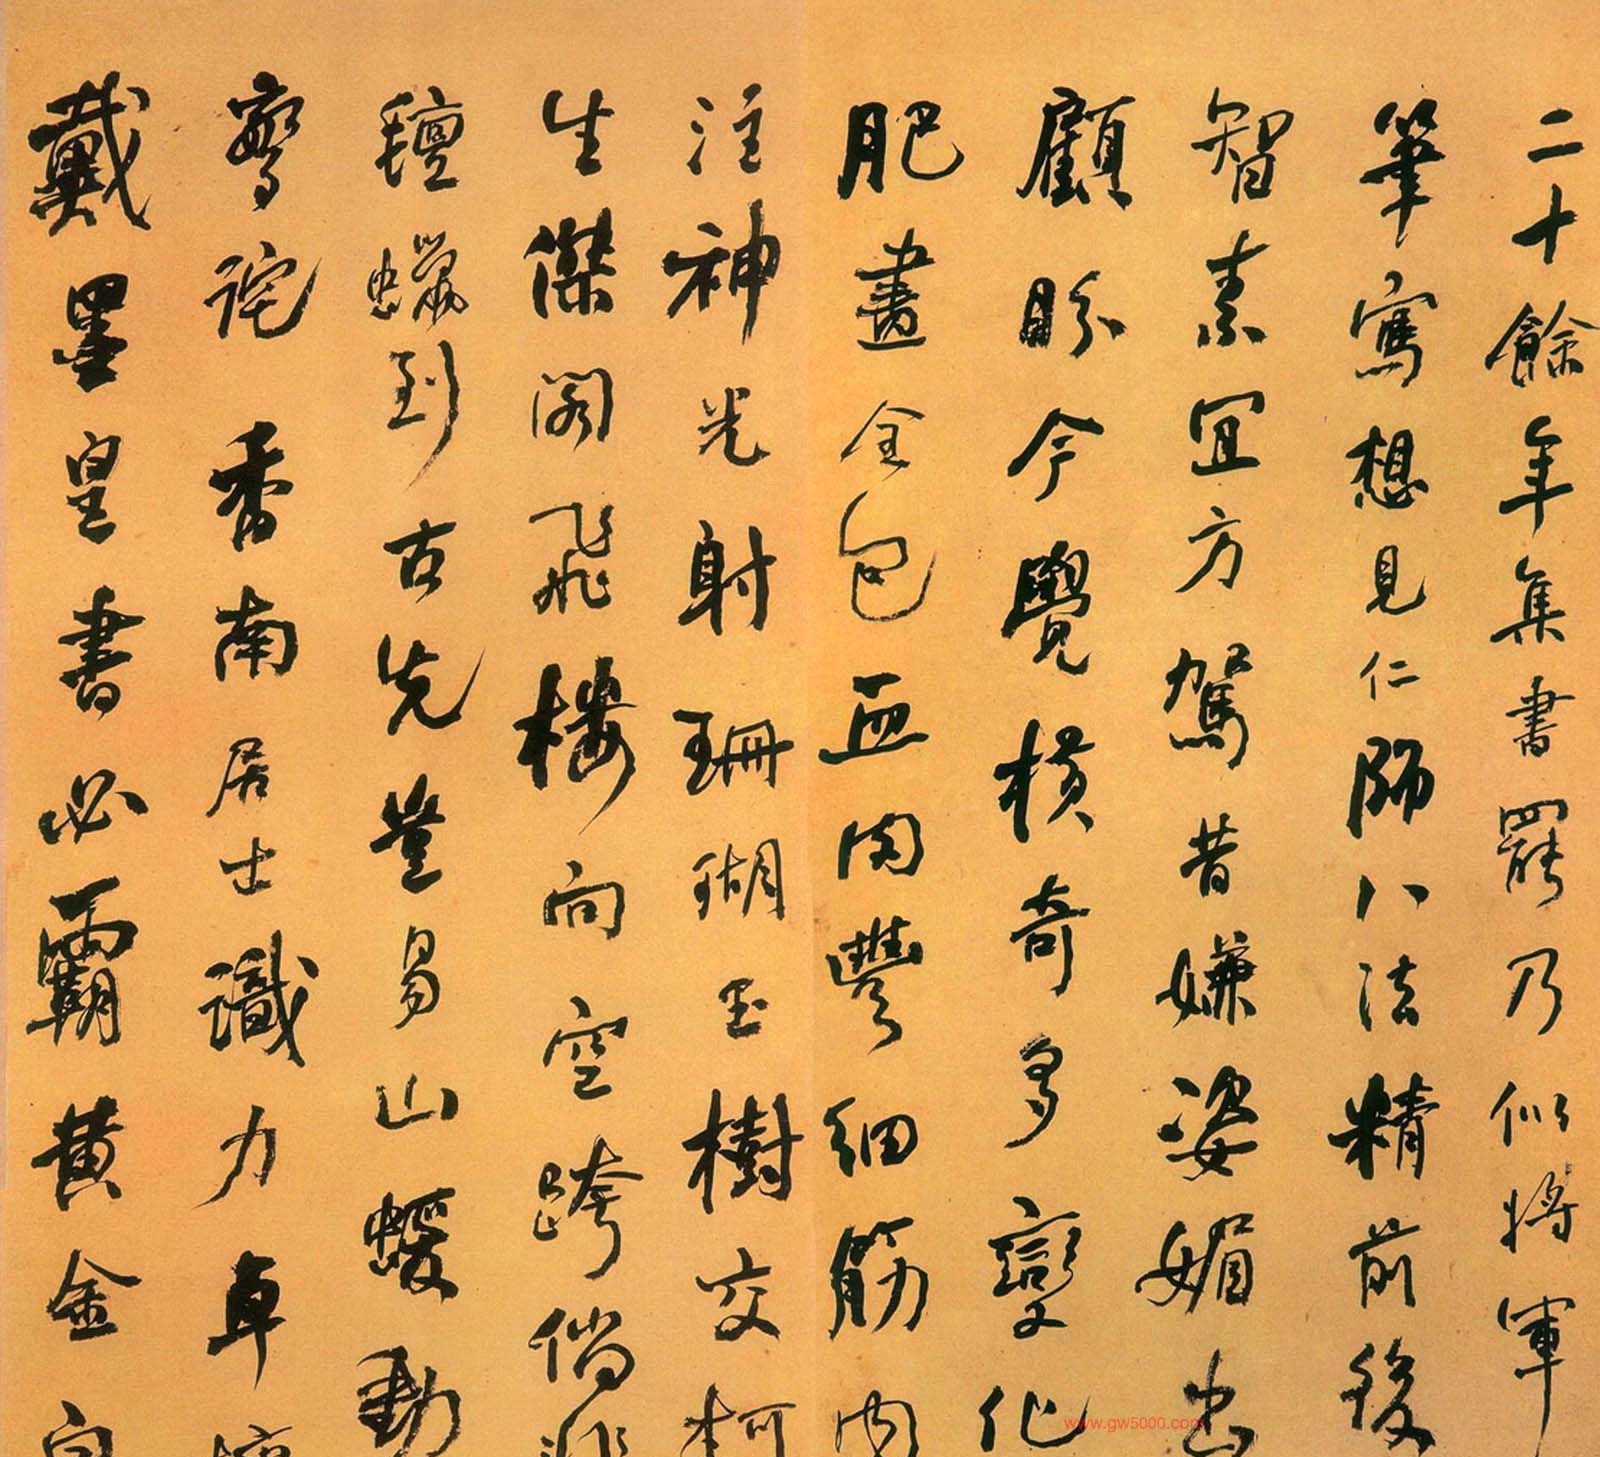 二十餘年集書罷乃似將軍
筆寫想見仁師八法精前後
智素宜方駕昔嫌姿媚出
顧盼今覺橫奇多變化
肥畫全包血肉豐細筋內
注神光射珊瑚玉樹交柯
生傑閣飛樓向空跨倘非
氊蠟到古先豈易山巖動
驚詫香南居士識力卓
戴墨皇書必霸黃金白
www.gw5000.com